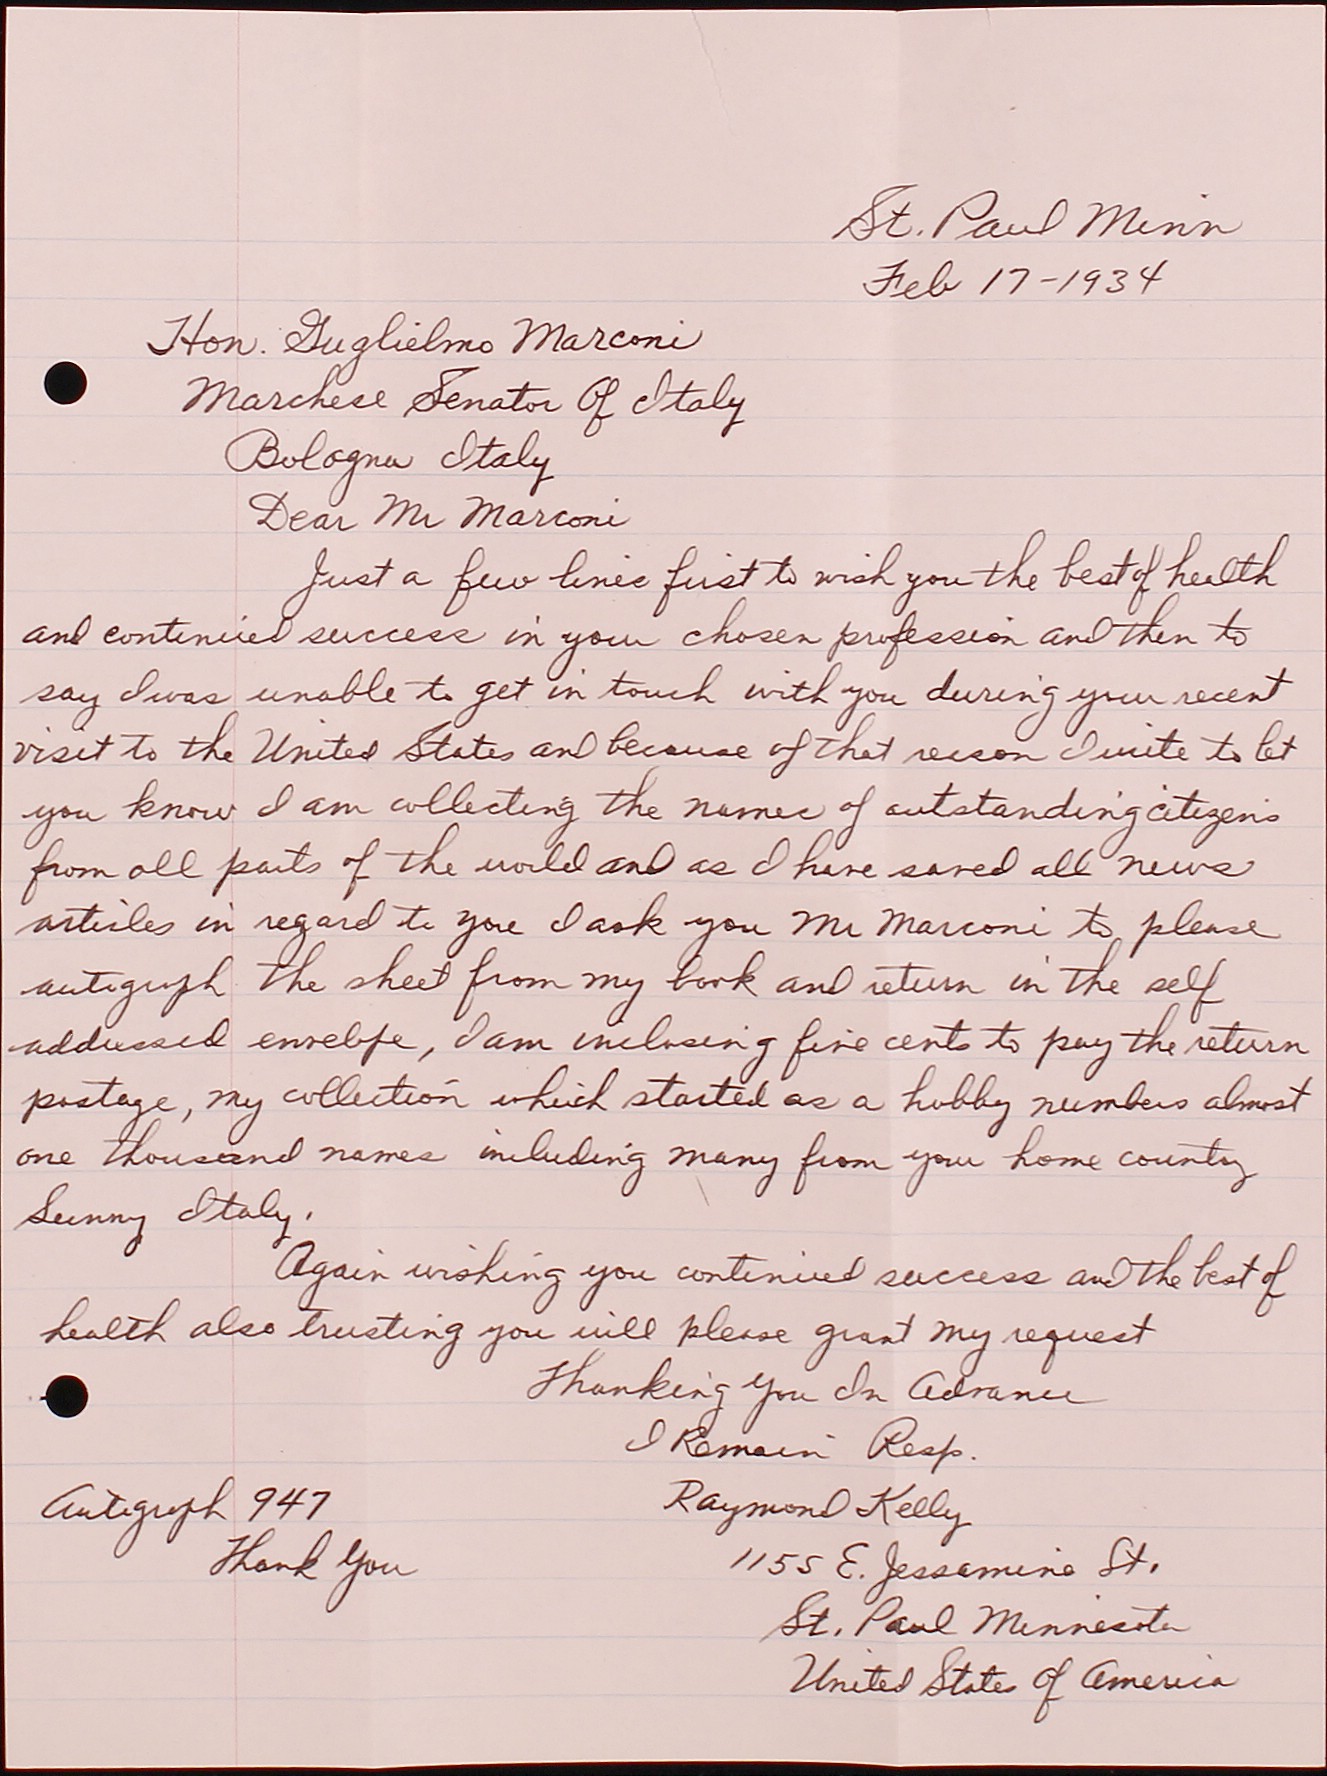 St. Paul Minn
Feb 17-1934
Hon. Guglielmo Marconi
Marchese Senator Of Italy
Bologna Italy
Dear Mr Marconi
Just a few lines first to wish you the best of health
and continued success in your chosen profession and then to
say I was unable to get in touch with you during your recent
visit to the United States and because of that reason I write to let
you know I am collecting the names of outstanding citizens
from all parts of the world and as I have saved all news
articles in regard to you I ask you Mr Marconi to please
autograph the sheet from my book and return in the self
addressed envelope, I am inclosing five cents to pay the return
postage, my collection which started as a hobby numbers almost
one thousand names including many from your home country
Sunny Italy.
Again wishing you continued success and the best of
health also trusting you will please grant my request
Thanking You In Advance
I Remain Resp.
Autograph 947 Raymond Kelly
Thank You 1155 E. Jessamine St.
St. Paul Minnesota
United States Of America